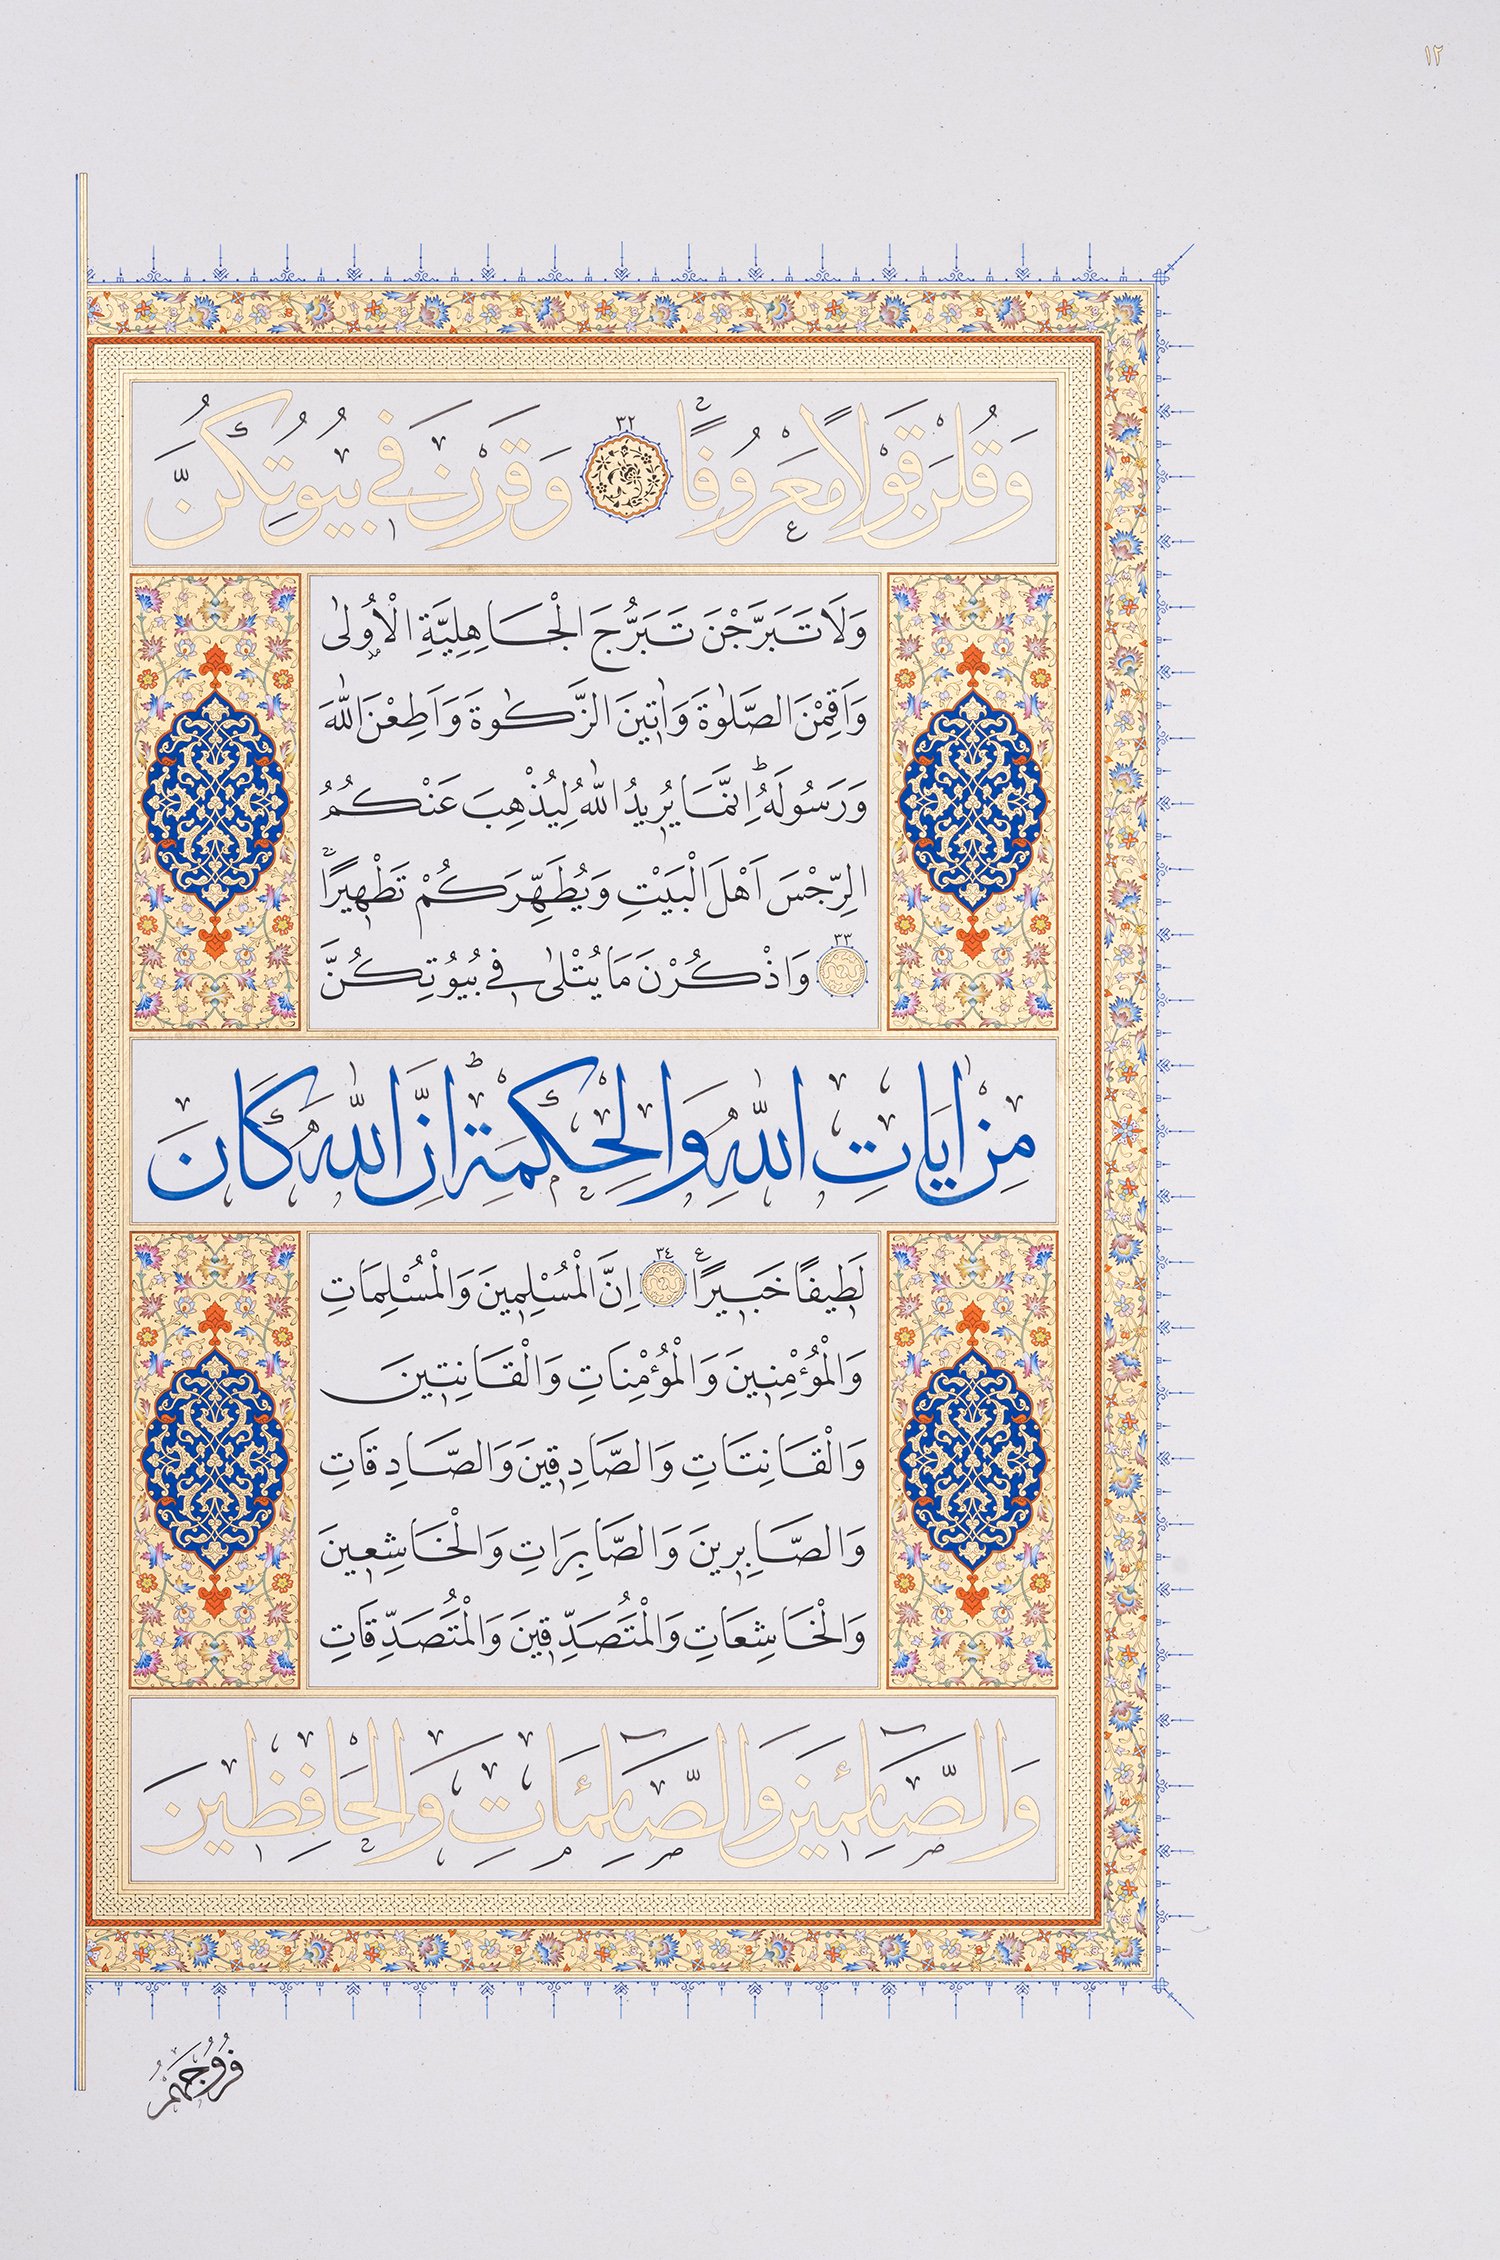 ١٢
وَقُلْنَ قَوْلًا مَعْرُوفًا ٣٢ وَقَرْنَ فِي بُيُوتِكُنَّ
وَلَا تَبَرَّجْنَ تَبَرُّجَ الْجَاهِلِيَّةِ الْاُولٰى
وَاَقِمْنَ الصَّلٰوةَ وَاٰتِينَ الزَّكٰوةَ وَاَطِعْنَ اللّٰهَ
وَرَسُولَهُ ۜ اِنَّمَا يُرِيدُ اللّٰهُ لِيُذْهِبَ عَنْكُمُ
الرِّجْسَ اَهْلَ الْبَيْتِ وَيُطَهِّرَكُمْ تَطْهِيرًا
٣٣ وَاذْكُرْنَ مَا يُتْلٰى فِي بُيُوتِكُنَّ
مِنْ اٰيَاتِ اللّٰهِ وَالْحِكْمَةِ ط اِنَّ اللّٰهَ كَانَ
لَطِيفًا خَبِيرًا ع ٣٤ اِنَّ الْمُسْلِمِينَ وَالْمُسْلِمَاتِ
وَالْمُؤْمِنِينَ وَالْمُؤْمِنَاتِ وَالْقَانِتِينَ
وَالْقَانِتَاتِ وَالصَّادِقِينَ وَالصَّادِقَاتِ
وَالصَّابِرِينَ وَالصَّابِرَاتِ وَالْخَاشِعِينَ
وَالْخَاشِعَاتِ وَالْمُتَصَدِّقِينَ وَالْمُتَصَدِّقَاتِ
وَالصَّائِمِينَ وَالصَّائِمَاتِ وَالْحَافِظِينَ
فُرُوجَهُمْ